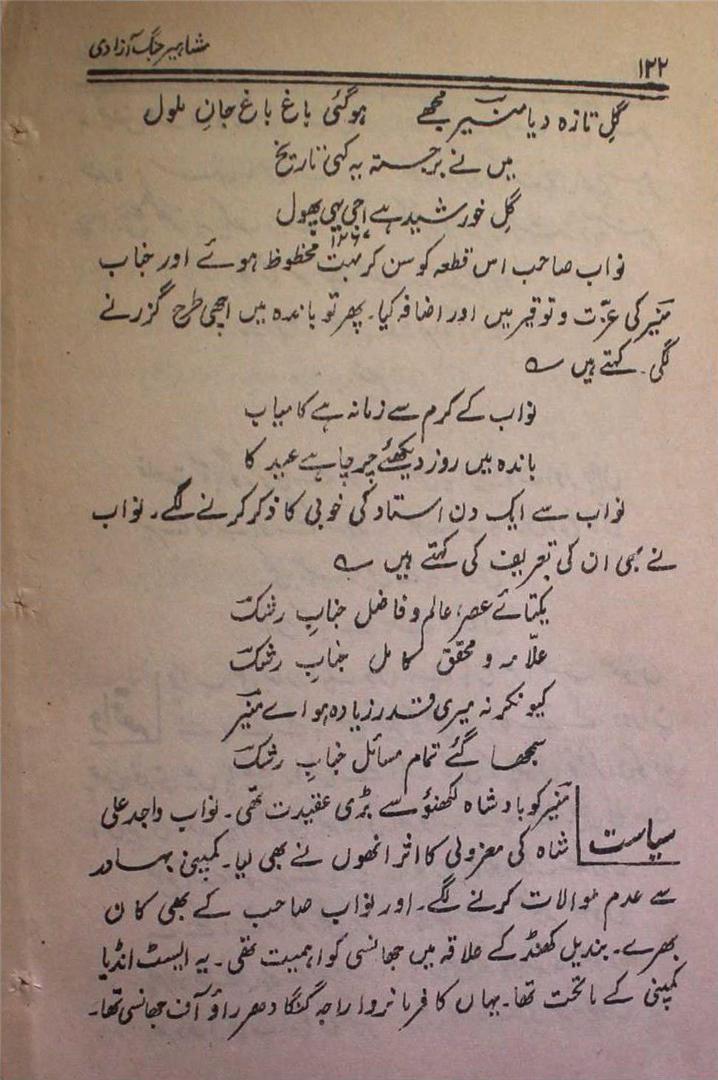 ۱۲۲
مشاہیر جنگ آزادی
گلِ تازہ دیا منیرؔ مجھے ہوگئی باغ باغ جانِ ملول
میں نے برجستہ یہ کہی تاریخ
گلِ خورشید ہے اجی یہی پھول
۱۲۶۷
نواب صاحب اس قطعہ کو سن کر بہت محظوظ ہوئے اور جناب
منیرؔ کی عزّت و توقیر میں اور اضافہ کیا۔ پھر تو باندہ میں اچھی طرح گزرنے
لگی۔ کہتے ہیں ؎
نواب کے کرم سے زمانہ ہے کامیاب
باندہ میں روز دیکھئے چرچا ہے عید کا
نواب سے ایک دن استاد کی خوبی کا ذکر کرنے لگے۔ نواب
نے بھی ان کی تعریف کی کہتے ہیں ؎
یکتائے عصر، عالم و فاضل جنابِ رشکؔ
علاّمہ و محقق کامل جنابِ رشکؔ
کیونکر نہ میری قدر زیادہ ہو اے منیرؔ
سمجھا گئے تمام مسائل جنابِ رشکؔ
سیاست
منیرؔ کو بادشاہ لکھنؤ سے بڑی عقیدت تھی۔ نواب واجد علی
شاہ کی معزولی کا اثر انھوں نے بھی لیا۔ کمپنی بہادر
سے عدم موالات کرنے لگے۔ اور نواب صاحب کے بھی کان
بھرے۔ بندیل کھنڈ کے علاقہ میں جھانسی کو اہمیت تھی۔ یہ ایسٹ انڈیا
کمپنی کے ماتحت تھا۔ یہاں کا فرمانروا راجہ گنگا دھر راؤ آف جھانسی تھا۔